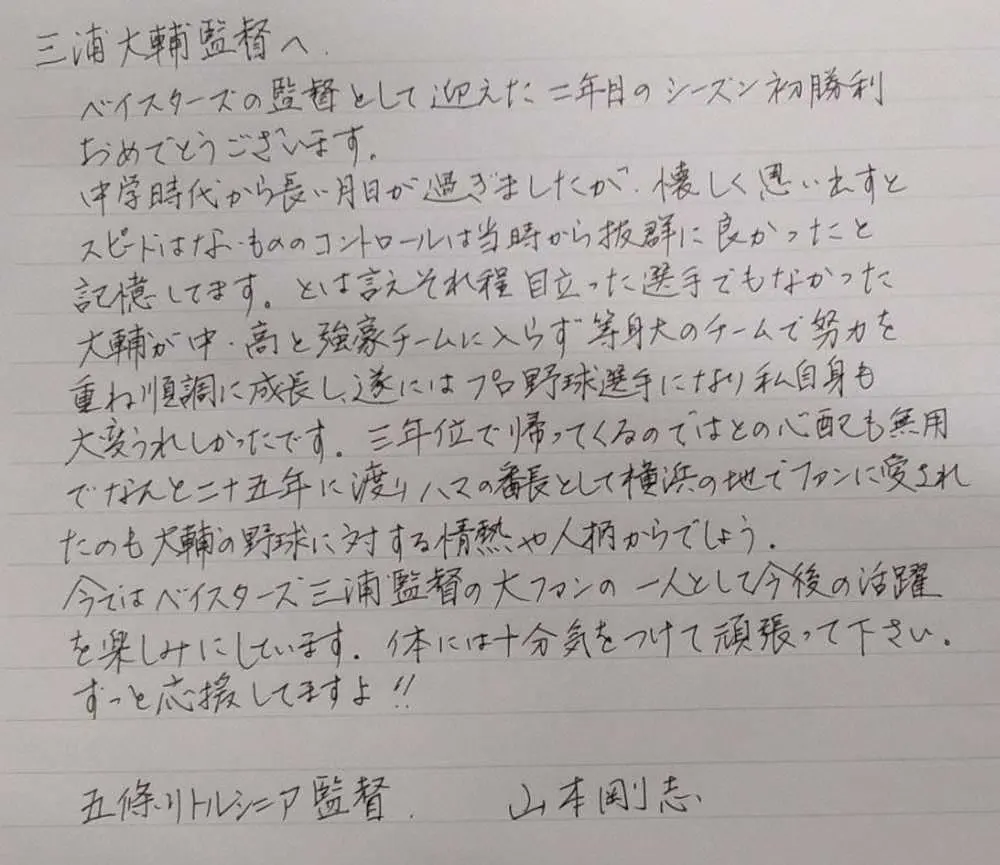 三浦大輔監督へ.
ベイスターズの監督として迎えた二年目のシーズン初勝利
おめでとうございます.
中学時代から長い月日が過ぎましたが、懐しく思い出すと
スピードはないもののコントロールは当時から抜群に良かったと
記憶してます。とは言えそれ程目立った選手でもなかった
大輔が中・高と強豪チームに入らず等身大のチームで努力を
重ね順調に成長し、遂にはプロ野球選手になり私自身も
大変うれしかったです。三年位で帰ってくるのではとの心配も無用
でなんと二十五年に渡りハマの番長として横浜の地でファンに愛され
たのも大輔の野球に対する情熱や人柄からでしょう.
今ではベイスターズ三浦監督の大ファンの一人として今後の活躍
を楽しみにしています. 体には十分気をつけて頑張って下さい.
ずっと応援してますよ!!
五條リトルシニア監督. 山本剛志